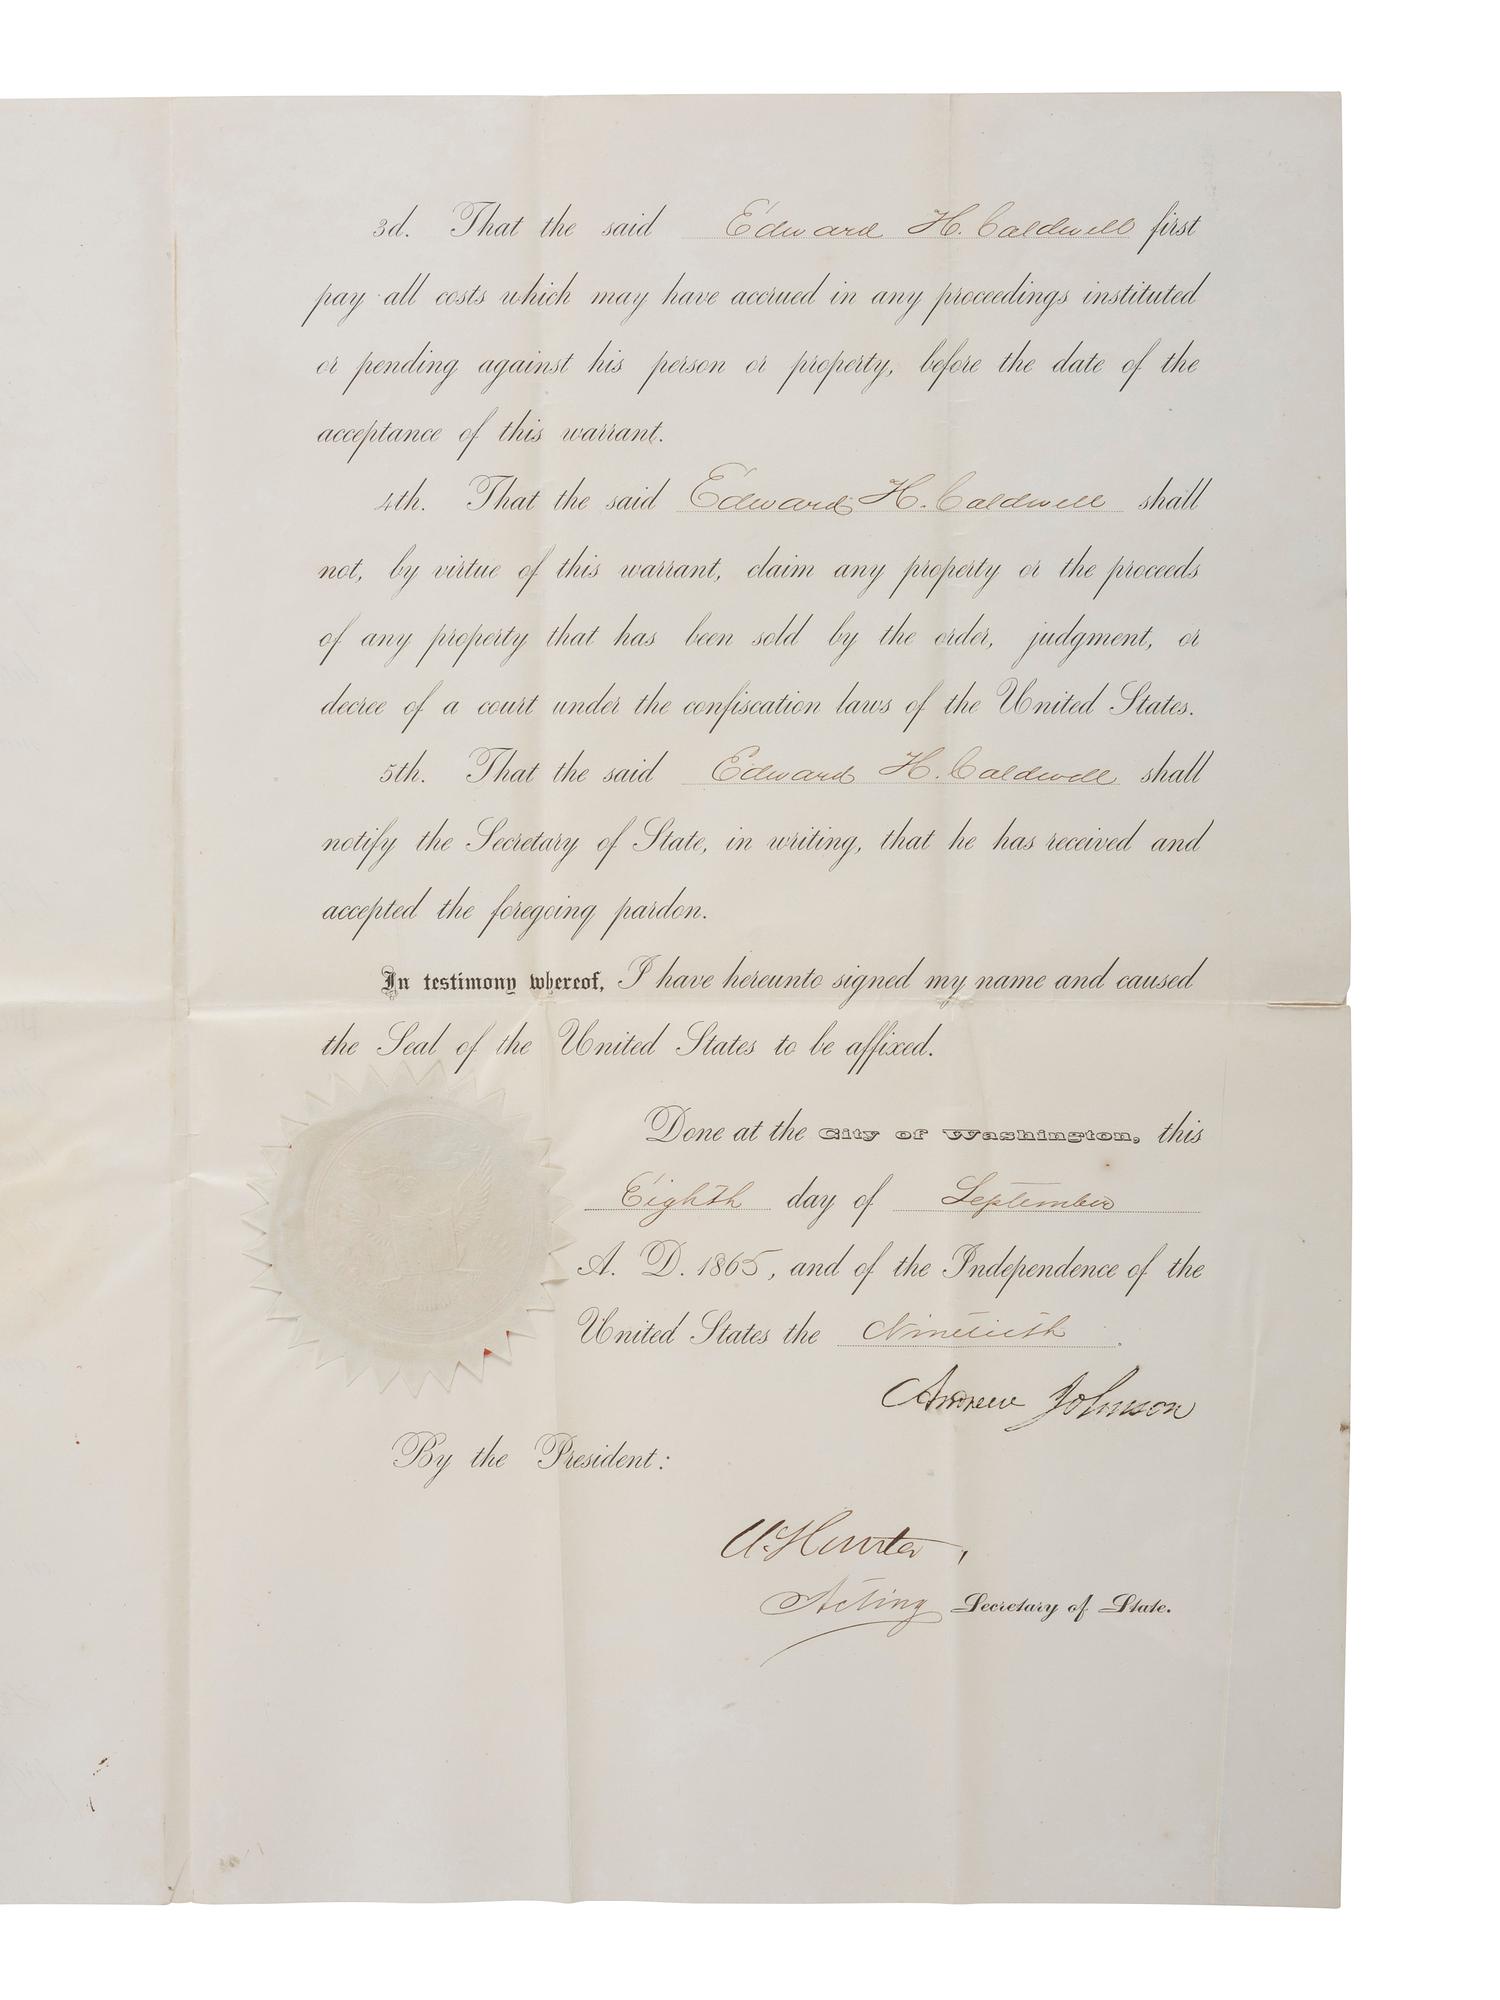 3d. That the said Edward H. Caldwell first
pay all costs which may have accrued in any proceedings instituted
or pending against his person or property, before the date of the
acceptance of this warrant.
4th. That the said Edward H. Caldwell shall
not, by virtue of this warrant, claim any property or the proceeds
of any property that has been sold by the order, judgment, or
decree of a court under the confiscation laws of the United States.
5th. That the said Edward H. Caldwell shall
notify the Secretary of State, in writing, that he has received and
accepted the foregoing pardon.
In testimony whereof, I have hereunto signed my name and caused
the Seal of the United States to be affixed.
Done at the City of Washington, this
Eighth day of September
A. D. 1865, and of the Independence of the
United States the Ninetieth.
Andrew Johnson
By the President:
W. Hunter,
Acting Secretary of State.